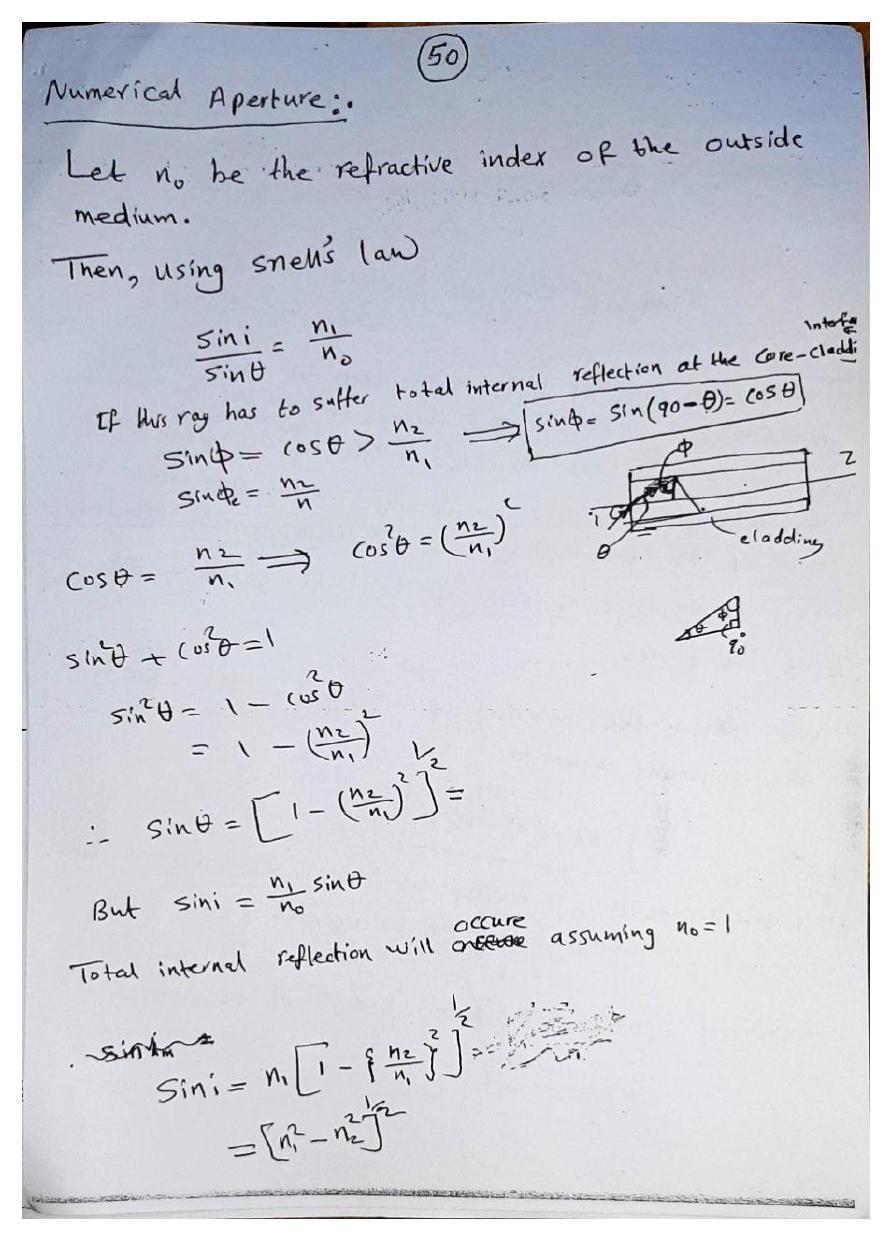 50
Numerical Aperture:.
Let n₀ be the refractive index of the outside
medium.
Then, using snell's law
sin i / sin θ = n₁ / n₀
If this ray has to suffer total internal reflection at the core-claddi
sin ϕ = cos θ > n₂ / n₁ ⟹ sin ϕ = sin(90-θ) = cos θ
sin ϕc = n₂ / n
ϕ
Z
i
θ
cladding
cos θ = n₂ / n₁ ⟹ cos²θ = (n₂ / n₁)²
θ ϕ
90
sin²θ + cos²θ = 1
sin²θ = 1 - cos²θ
= 1 - (n₂ / n₁)²
∴ sin θ = [1 - (n₂ / n₁)²]^1/2 =
But sin i = n₁ / n₀ sin θ
Total internal reflection will occure assuming n₀ = 1
sin i = n₁ [1 - {n₂ / n₁}²]^1/2 =
= [n₁² - n₂²]^1/2